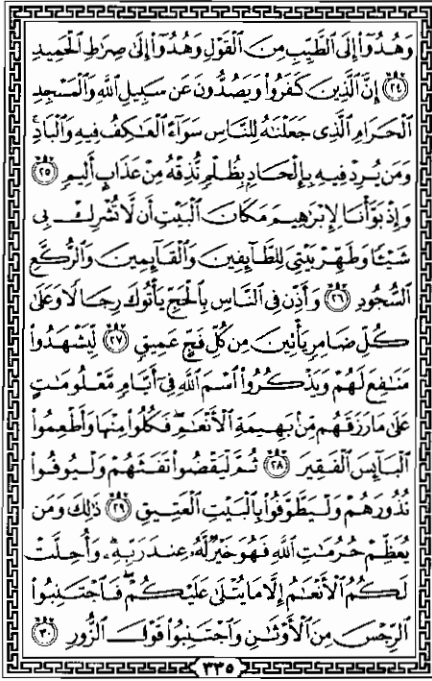 وَهُدُوٓا۟ إِلَى ٱلطَّيِّبِ مِنَ ٱلْقَوْلِ وَهُدُوٓا۟ إِلَىٰ صِرَٰطِ ٱلْحَمِيدِ
٢٤ إِنَّ ٱلَّذِينَ كَفَرُوا۟ وَيَصُدُّونَ عَن سَبِيلِ ٱللَّهِ وَٱلْمَسْجِدِ
ٱلْحَرَامِ ٱلَّذِى جَعَلْنَٰهُ لِلنَّاسِ سَوَآءً ٱلْعَٰكِفُ فِيهِ وَٱلْبَادِ ۚ
وَمَن يُرِدْ فِيهِ بِإِلْحَادٍۭ بِظُلْمٍ نُّذِقْهُ مِنْ عَذَابٍ أَلِيمٍ ٢٥
وَإِذْ بَوَّأْنَا لِإِبْرَٰهِيمَ مَكَانَ ٱلْبَيْتِ أَن لَّا تُشْرِكْ بِى
شَيْـًٔا وَطَهِّرْ بَيْتِىَ لِلطَّآئِفِينَ وَٱلْقَآئِمِينَ وَٱلرُّكَّعِ
ٱلسُّجُودِ ٢٦ وَأَذِّن فِى ٱلنَّاسِ بِٱلْحَجِّ يَأْتُوكَ رِجَالًا وَعَلَىٰ
كُلِّ ضَامِرٍ يَأْتِينَ مِن كُلِّ فَجٍّ عَمِيقٍ ٢٧ لِّيَشْهَدُوا۟
مَنَٰفِعَ لَهُمْ وَيَذْكُرُوا۟ ٱسْمَ ٱللَّهِ فِىٓ أَيَّامٍ مَّعْلُومَٰتٍ
عَلَىٰ مَا رَزَقَهُم مِّنۢ بَهِيمَةِ ٱلْأَنْعَٰمِ ۖ فَكُلُوا۟ مِنْهَا وَأَطْعِمُوا۟
ٱلْبَآئِسَ ٱلْفَقِيرَ ٢٨ ثُمَّ لْيَقْضُوا۟ تَفَثَهُمْ وَلْيُوفُوا۟
نُذُورَهُمْ وَلْيَطَّوَّفُوا۟ بِٱلْبَيْتِ ٱلْعَتِيقِ ٢٩ ذَٰلِكَ وَمَن
يُعَظِّمْ حُرُمَٰتِ ٱللَّهِ فَهُوَ خَيْرٌ لَّهُۥ عِندَ رَبِّهِۦ ۗ وَأُحِلَّتْ
لَكُمُ ٱلْأَنْعَٰمُ إِلَّا مَا يُتْلَىٰ عَلَيْكُمْ ۖ فَٱجْتَنِبُوا۟
ٱلرِّجْسَ مِنَ ٱلْأَوْثَٰنِ وَٱجْتَنِبُوا۟ قَوْلَ ٱلزُّورِ ٣٠
٣٣٥